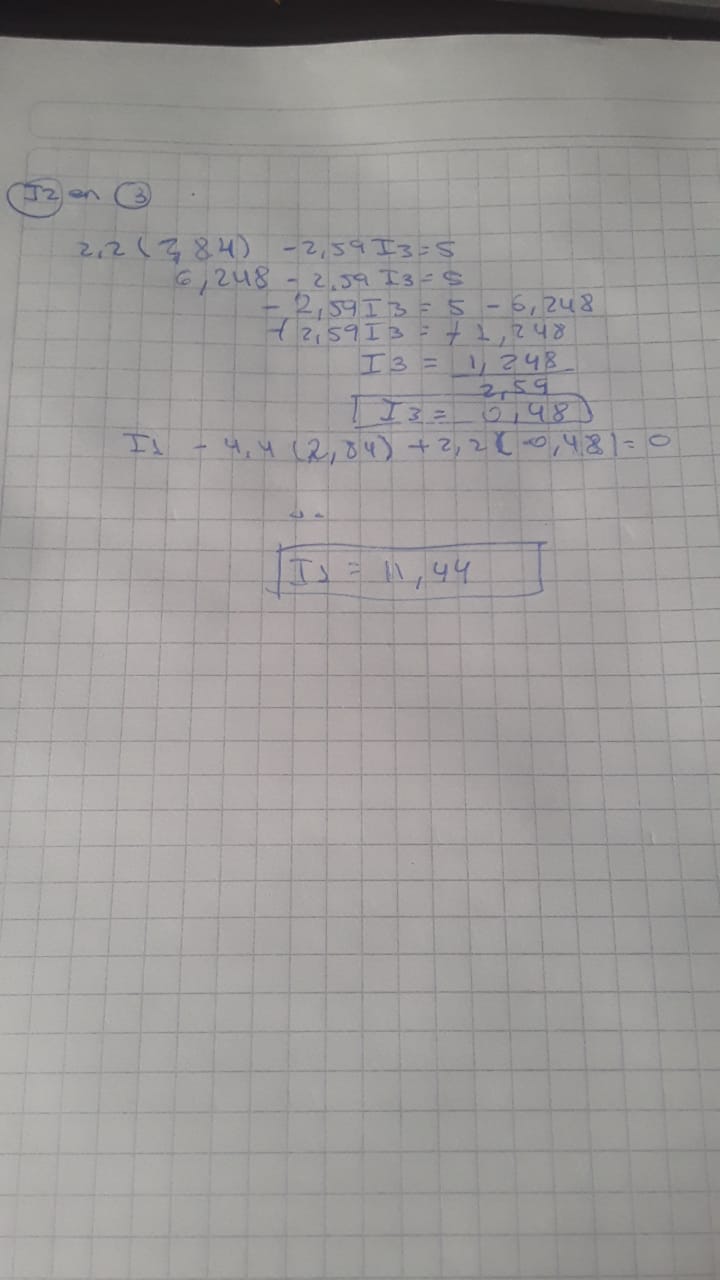 I2 en 3
2,2(2,84) -2,59 I3=5
6,248 - 2,59 I3=5
- 2,59 I3 = 5 - 6,248
+ 2,59 I3 = + 1,248
I3 = 1,248
2,59
I3 = 0,48
I1 - 4,4 (2,84) + 2,2(-0,48)=0
I1 = 11,44